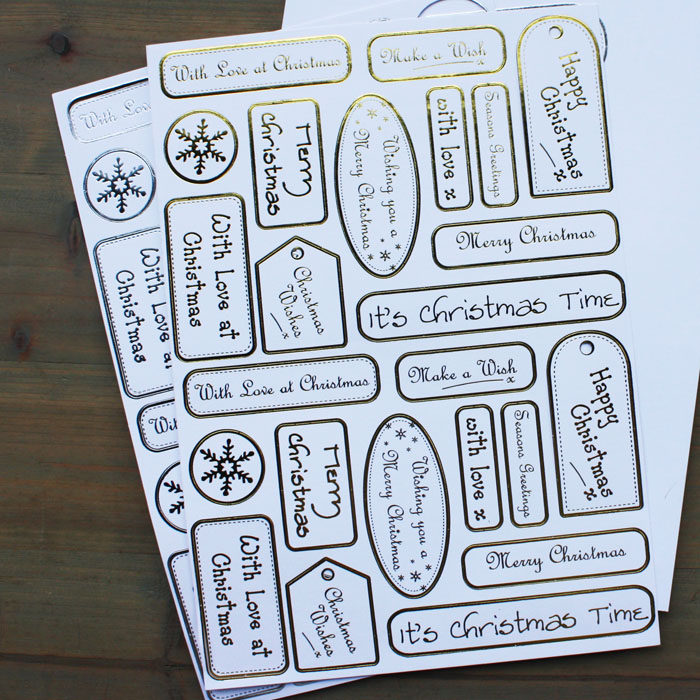 With Love at Christmas
Make a Wish
x
Happy
Christmas
x
Merry
Christmas
Wishing you a
Merry Christmas
with love x
Seasons Greetings
With Love at
Christmas
Christmas
Wishes
x
Merry Christmas
It's Christmas Time
With Love at Christmas
Make a Wish
x
Happy
Christmas
x
Merry
Christmas
Wishing you a
Merry Christmas
with love x
Seasons Greetings
With Love at
Christmas
Christmas
Wishes
x
Merry Christmas
It's Christmas Time
With Love
With Love at
Christmas
With